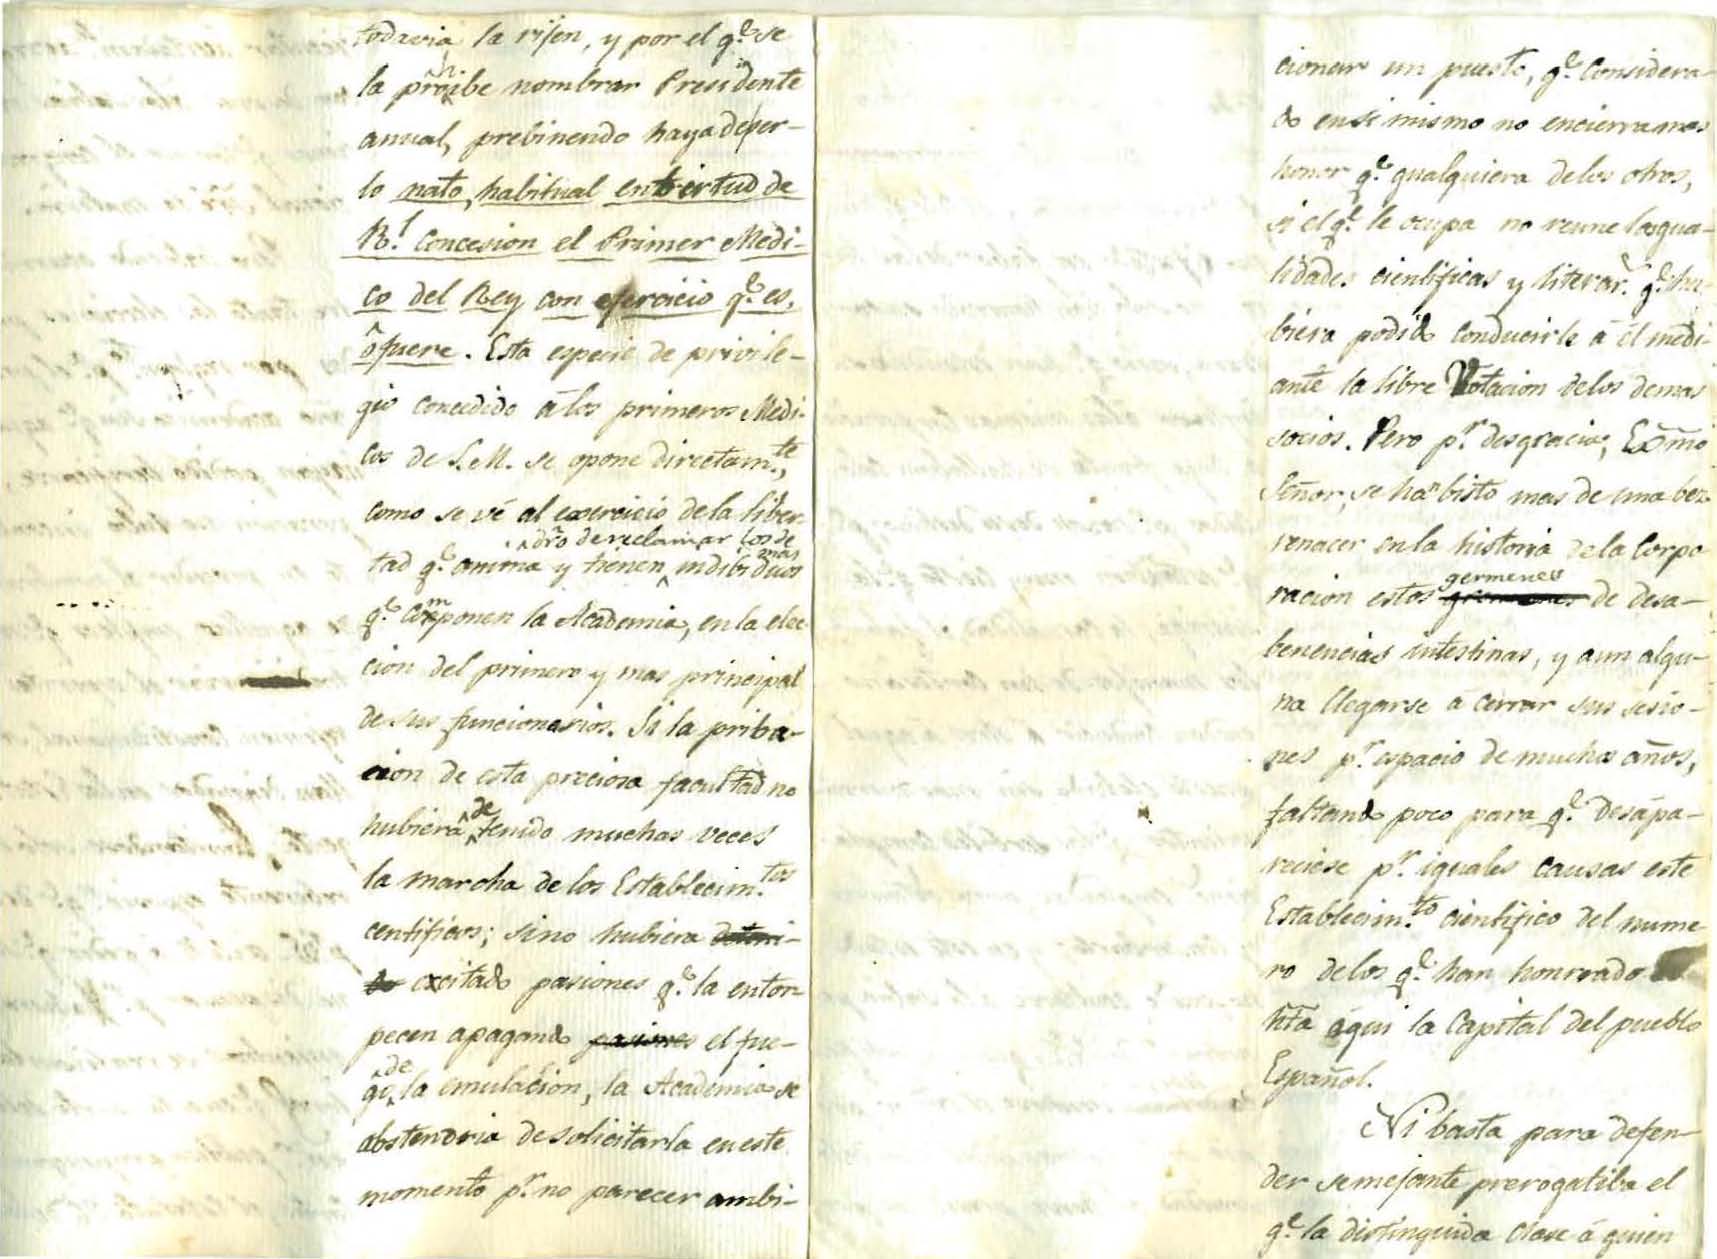 todavia la rijen, y por el q.e se
la prohibe nombrar Presidente
anual, prebiniendo haya de ser-
lo nato, habitual en birtud de
R.l Concesion el Primer Medi-
co del Rey con exercicio q.e es,
ò fuere. Esta especie de privile-
gio concedido à los primeros Medi-
cos de S.M. se opone directam.te,
como se vé al exercicio de la liber-
tad q.e anima y tienen dro de reclamar los demas indibiduos
q.e componen la Academia, en la elec-
cion del primero y mas principal
de sus funcionarios. Si la priba-
cion de esta preciosa facultad no
hubiera detenido muchas veces
la marcha de los Establecim.tos
centificos; sino hubiera deteni-
do excitado pasiones q.e la entor-
pecen apagando pasiones el fue-
go de la emulacion, la Academia se
abstendria de solicitarla en este
momento p.r no parecer ambi-
cionar un puesto, q.e Considera-
do en si mismo no encierra mas
honor q.e qualquiera de los otros,
si el q.e le ocupa no reune las qua-
lidades cientificas y literar.s q.e hu-
biera podido conducirle à él medi-
ante la libre Votacion de los demas
socios. Pero p.r desgracia, Exmo
Señor, se han bisto mas de una bez
renacer en la historia de la Corpo
racion estos germenes de desa-
benencias intestinas, y aun algu-
na llegarse a cerrar sus sesio-
nes p.r espacio de muchos años,
faltando poco para q.e desapa-
reciese p.r iguales causas este
Establecim.to cientifico del nume-
ro de los q.e han honrado
hta aqui la Capital del pueblo
Español.
Ni basta para defen-
der semejante prerogatiba el
q.e la distinguida clase á quien